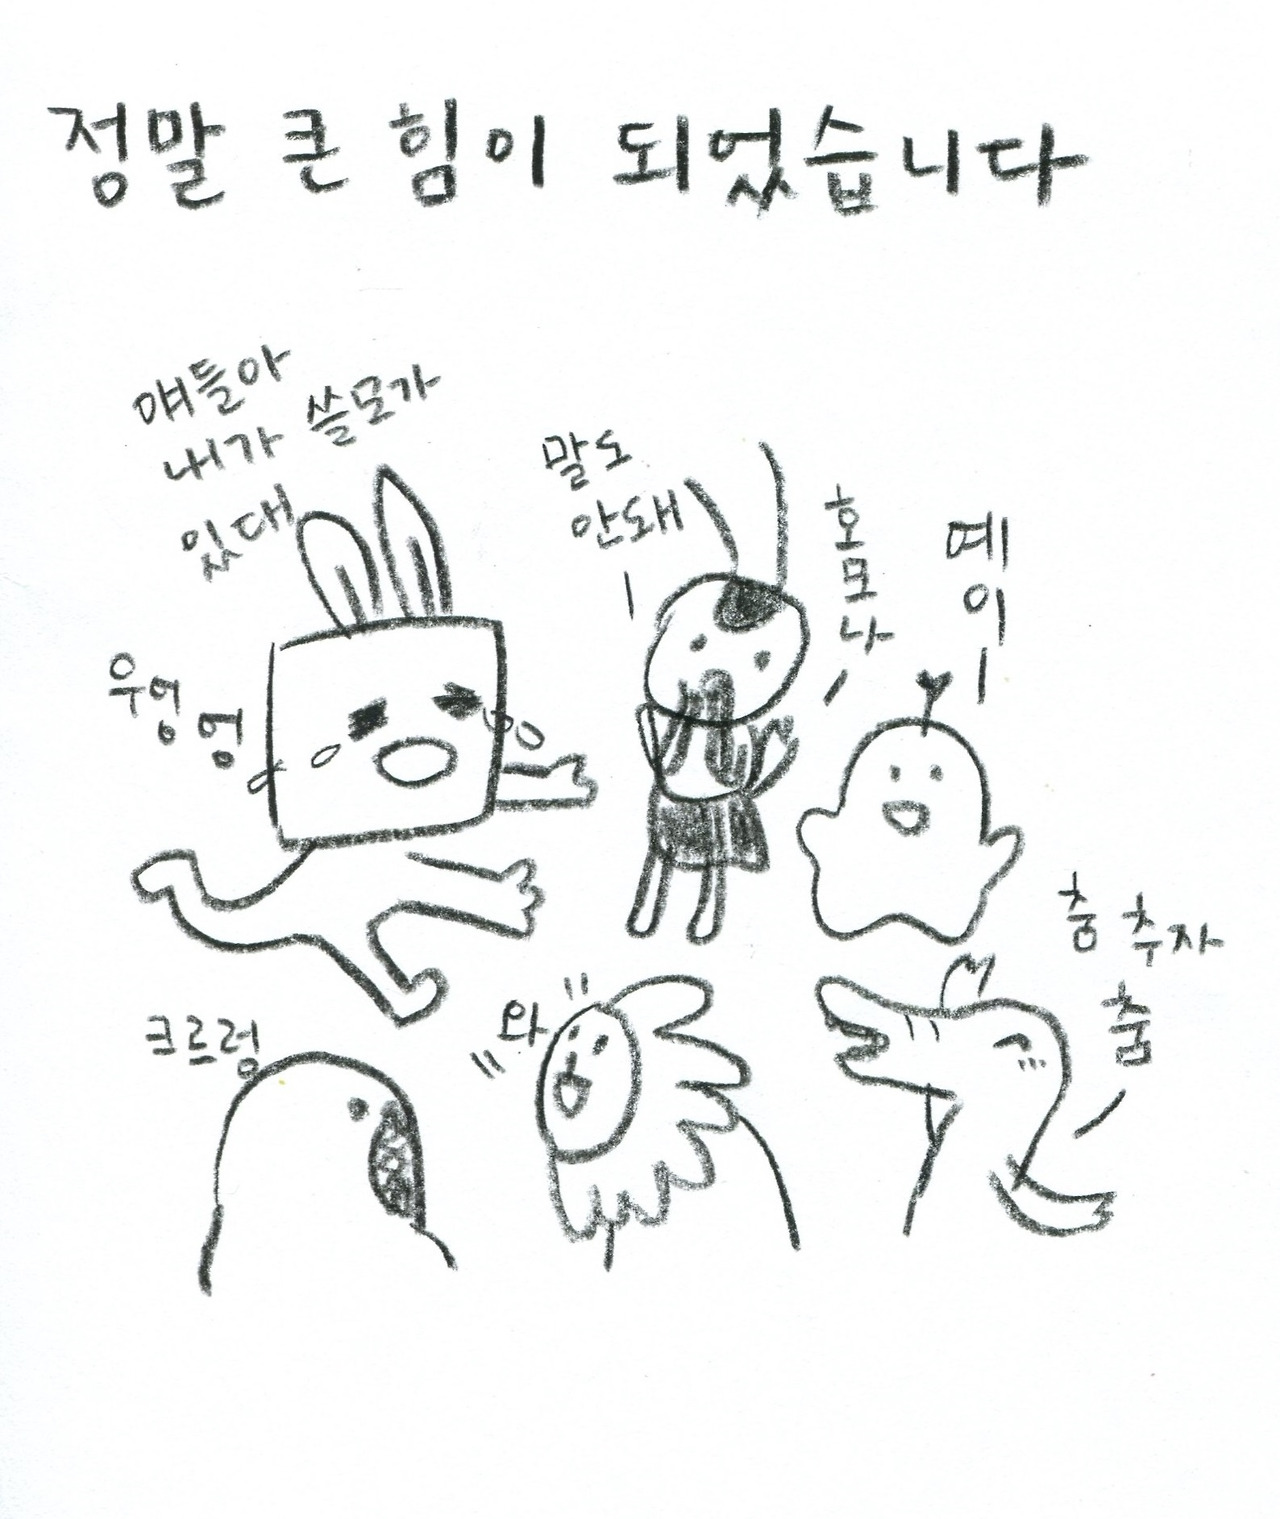 정말 큰 힘이 되었습니다
얘들아
내가 쓸모가
있대
말도
안돼
호모나
예이
우엉엉
춤 추자
춤
크르렁
와